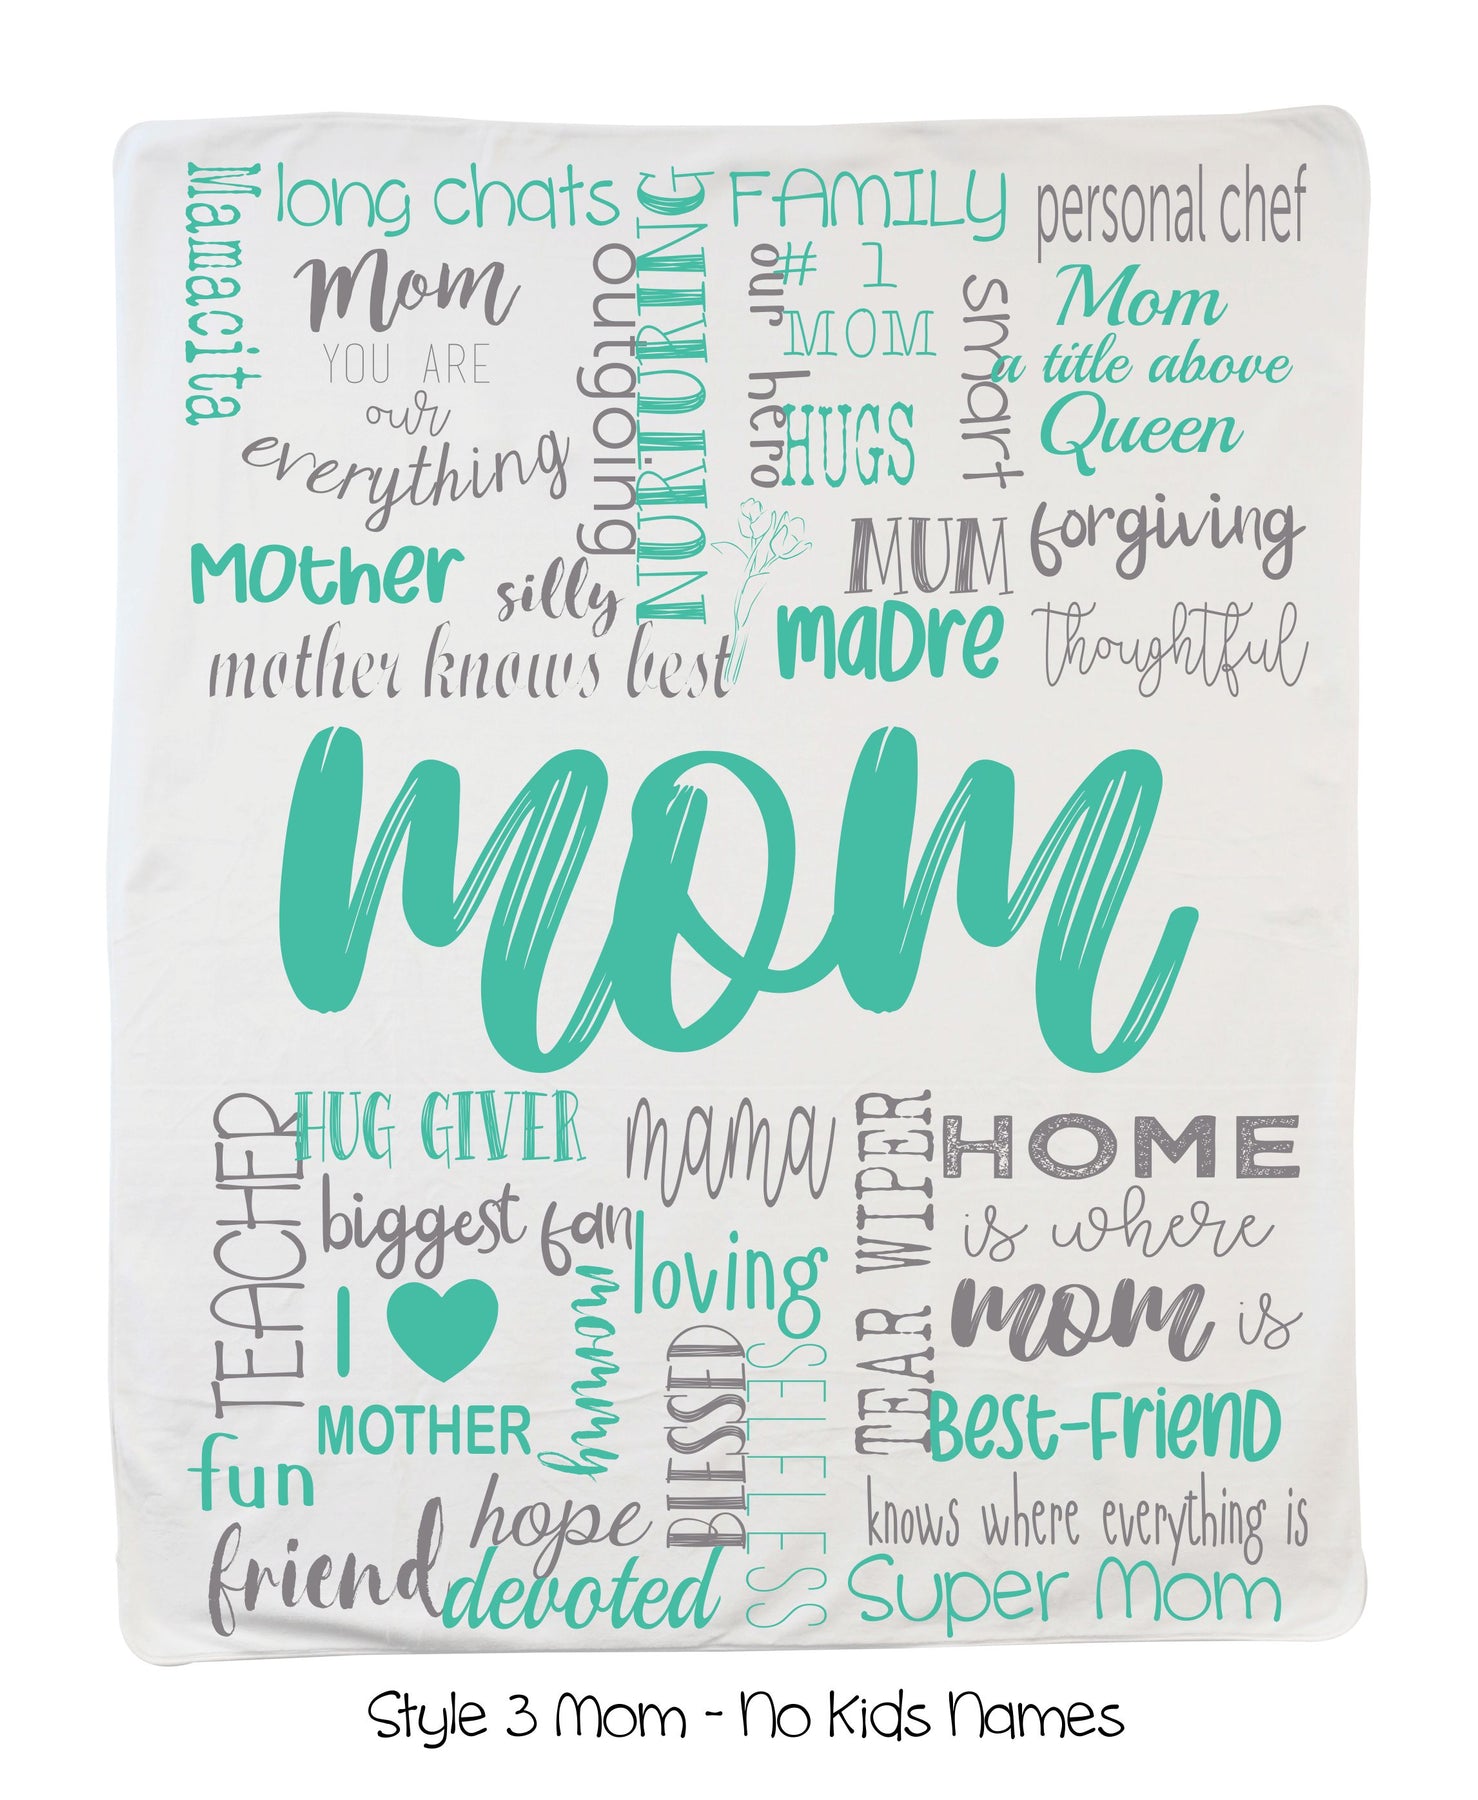 Mamacita
long chats
Mom
YOU ARE
our
everything
outgoing
NURTURING
FAMILY
# 1
MOM
our hero
HUGS
smart
personal chef
Mom
a title above
Queen
Mother
silly
mother knows best
MUM
madre
forgiving
thoughtful
mom
TEACHER
HUG GIVER
biggest fan
I
MOTHER
mommy
mama
loving
BLESSED
SELFLESS
TEAR WIPER
HOME
is where
mom is
Best-Friend
knows where everything is
Super Mom
fun
friend
hope
devoted
Style 3 Mom - No Kids Names